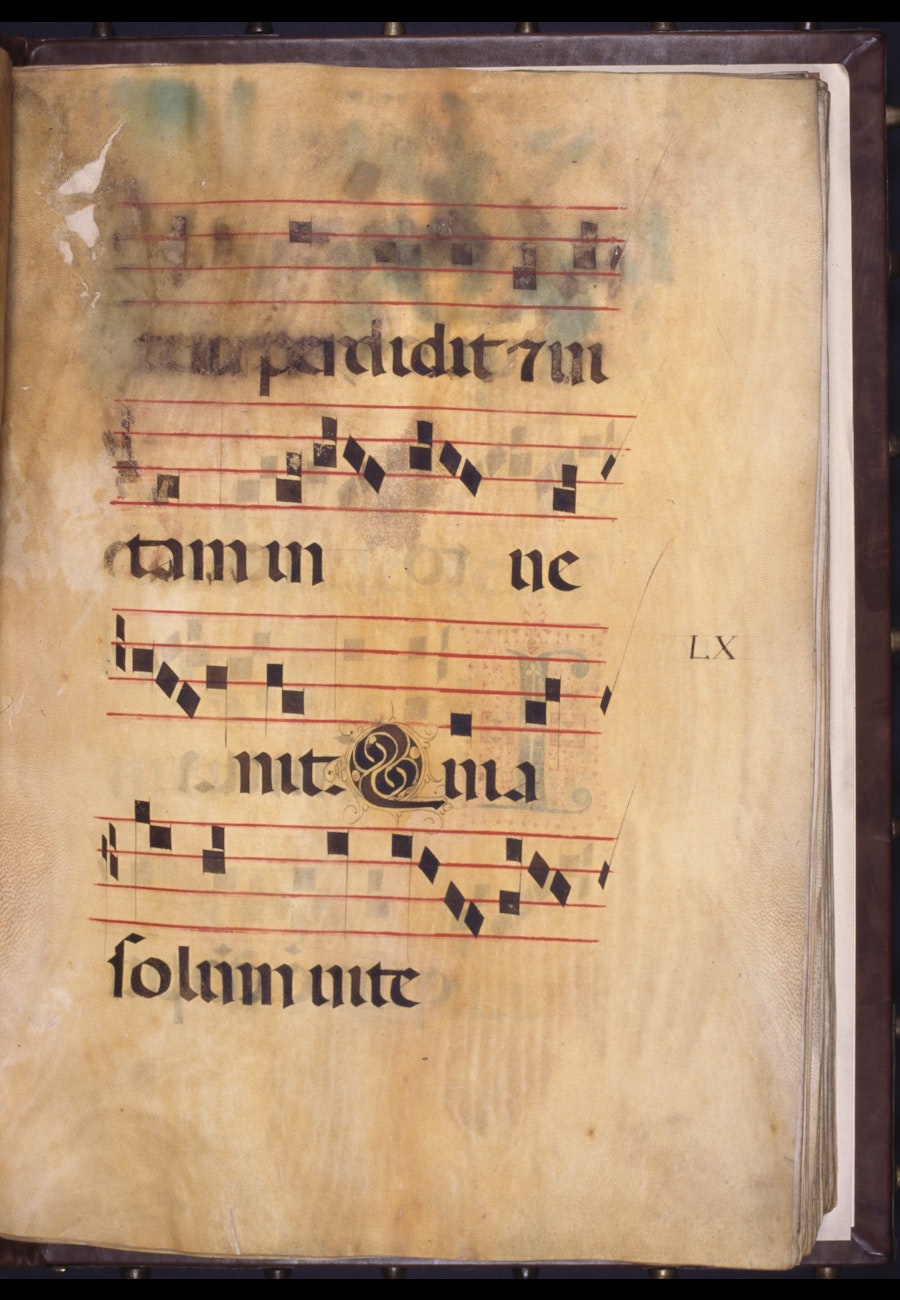 perdidit ⁊ ui
tam in ue
nit. Quia
solum uite
LX